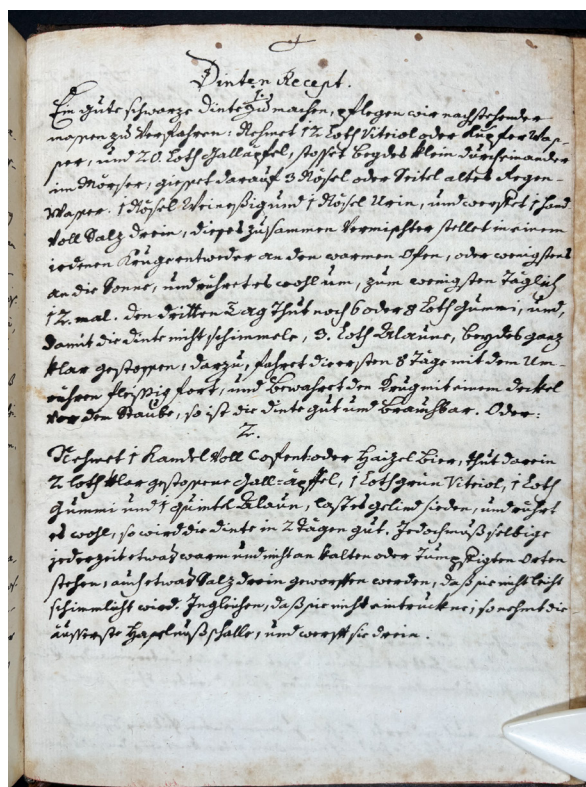 Dinten Recept.
1.
Ein gute schwarze Dinte zu machen, pflegen wir nachstehender
massen zu verfahren: Nehmet 12 Loth Vitriol oder Kupferwas-
ser, und 20 Loth Galläpfel, stosset beydes klein durcheinander
im Mörser, giesset darauf 3 Nösel oder Seitel altes Regen-
Wasser. 1 Nösel Weinessig und 1 Nösel Urin, und werffet 1 Hand
voll Salz drein, dieses zusammen vermischter stellet in einem
irdenen Krug entweder an den warmen Ofen, oder wenigstens
an die Sonne, und rühret es wohl um, zum wenigsten täglich
12 mal. den dritten Tag thut noch 6 oder 8 Loth Gummi, und,
damit die Dinte nicht schimmele, 3. Loth Alaune, beydes ganz
klar gestossen, darzu, fahret die ersten 8 Täge mit dem Um-
rühren fleissig fort, und bewahret den Krug mit einem deckel
vor dem Staube, so ist die Dinte gut und brauchbar. Oder:
2.
Nehmet 1 Kandel voll Cofent oder Bier, thut darein
2 Loth klar gestossene Gall-äpffel, 1 Loth grün Vitriol, 1 Loth
Gummi und 1 quintel Alaun, lasst es gelind sieden, und rühret
es wohl, so wird die Dinte in 2 Tägen gut. Jedoch muß selbige
jederzeit etwas warm und nicht an kalten oder dumpffigten Orten
stehen, auch etwas Salz drein geworffen werden, daß sie nicht leicht
schimmlicht wird. Ingleichen, daß sie nicht eintruckne, so nehmt die
äusserste Haselnuß schalle, und werfft sie drein.